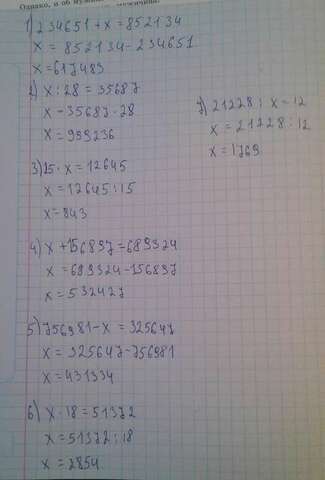 Однако, и об мужчина
1) 234651 + x = 852134
x = 852134 - 234651
x = 617483
2) x : 28 = 35687
x - 35687 · 28
x = 999236
3) 15 · x = 12645
x = 12645 : 15
x = 843
4) x + 156897 = 689324
x = 689324 - 156897
x = 532427
5) 756981 - x = 325647
x = 325647 - 756981
x = 431334
6) x · 18 = 51372
x = 51372 : 18
x = 2854
7) 21228 : x = 12
x = 21228 : 12
x = 1769